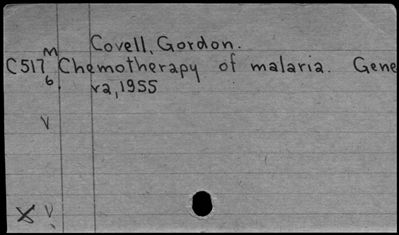 M Covell, Gordon.
C517 Chemotherapy of malaria. Gene
6. ra, 1955
V
X V